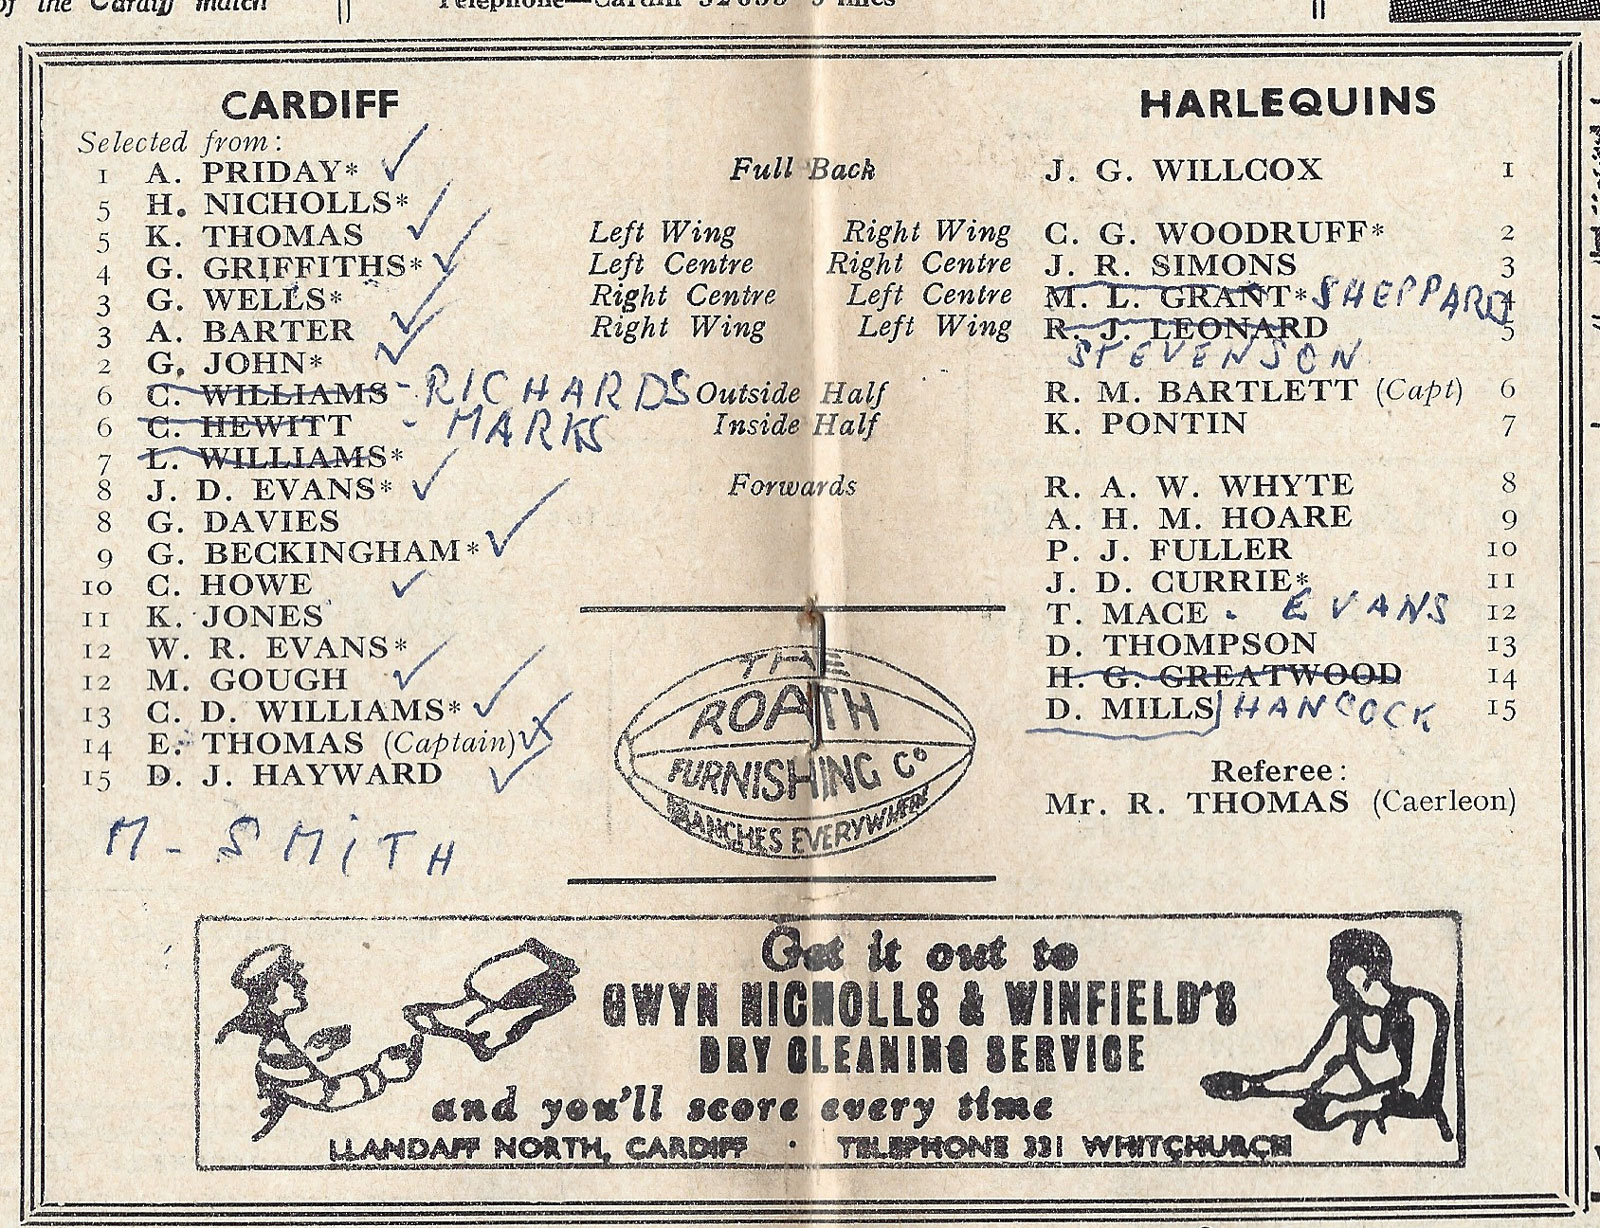 of the Cardiff match
Telephone—Cardiff
CARDIFF
Selected from:
1 A. PRIDAY* ✓
5 H. NICHOLLS*
5 K. THOMAS ✓
4 G. GRIFFITHS* ✓
3 G. WELLS*
3 A. BARTER ✓
2 G. JOHN* ✓
6 C. WILLIAMS - RICHARDS
6 C. HEWITT - MARKS
7 L. WILLIAMS*
8 J. D. EVANS* ✓
8 G. DAVIES
9 G. BECKINGHAM* ✓
10 C. HOWE ✓
11 K. JONES
12 W. R. EVANS*
12 M. GOUGH ✓
13 C. D. WILLIAMS* ✓
14 E. THOMAS (Captain) ✓
15 D. J. HAYWARD ✓
M - SMITH
Full Back
Left Wing Right Wing
Left Centre Right Centre
Right Centre Left Centre
Right Wing Left Wing
Outside Half
Inside Half
Forwards
HARLEQUINS
J. G. WILLCOX 1
C. G. WOODRUFF* 2
J. R. SIMONS 3
M. L. GRANT* SHEPPARD 4
R. J. LEONARD 5
STEVENSON
R. M. BARTLETT (Capt) 6
K. PONTIN 7
R. A. W. WHYTE 8
A. H. M. HOARE 9
P. J. FULLER 10
J. D. CURRIE* 11
T. MACE . EVANS 12
D. THOMPSON 13
H. G. GREATWOOD 14
D. MILLS HANCOCK 15
Referee:
Mr. R. THOMAS (Caerleon)
THE
ROATH
FURNISHING Co
BRANCHES EVERYWHERE
Get it out to
GWYN NICHOLLS & WINFIELD'S
DRY CLEANING SERVICE
and you'll score every time
LLANDAFF NORTH, CARDIFF · TELEPHONE 331 WHITCHURCH